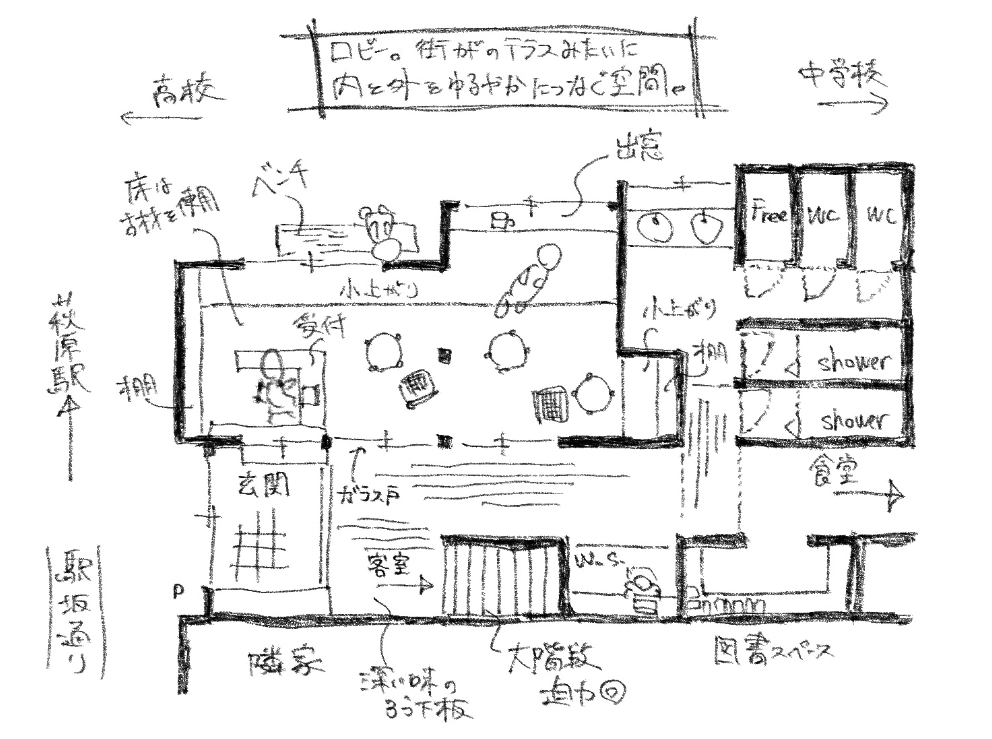 ロビー。街がのテラスみたいに
内と外をゆるやかにつなぐ空間。
高校
中学校
出窓
ベンチ
床は
古材を使用
Free
WC
WC
小上がり
小上がり
受付
棚
萩原駅
棚
shower
shower
玄関
ガラス戸
食堂
駅坂通り
P
客室
W.S.
隣家
深い味の
ろう下板
大階段
迫力◎
図書スペース